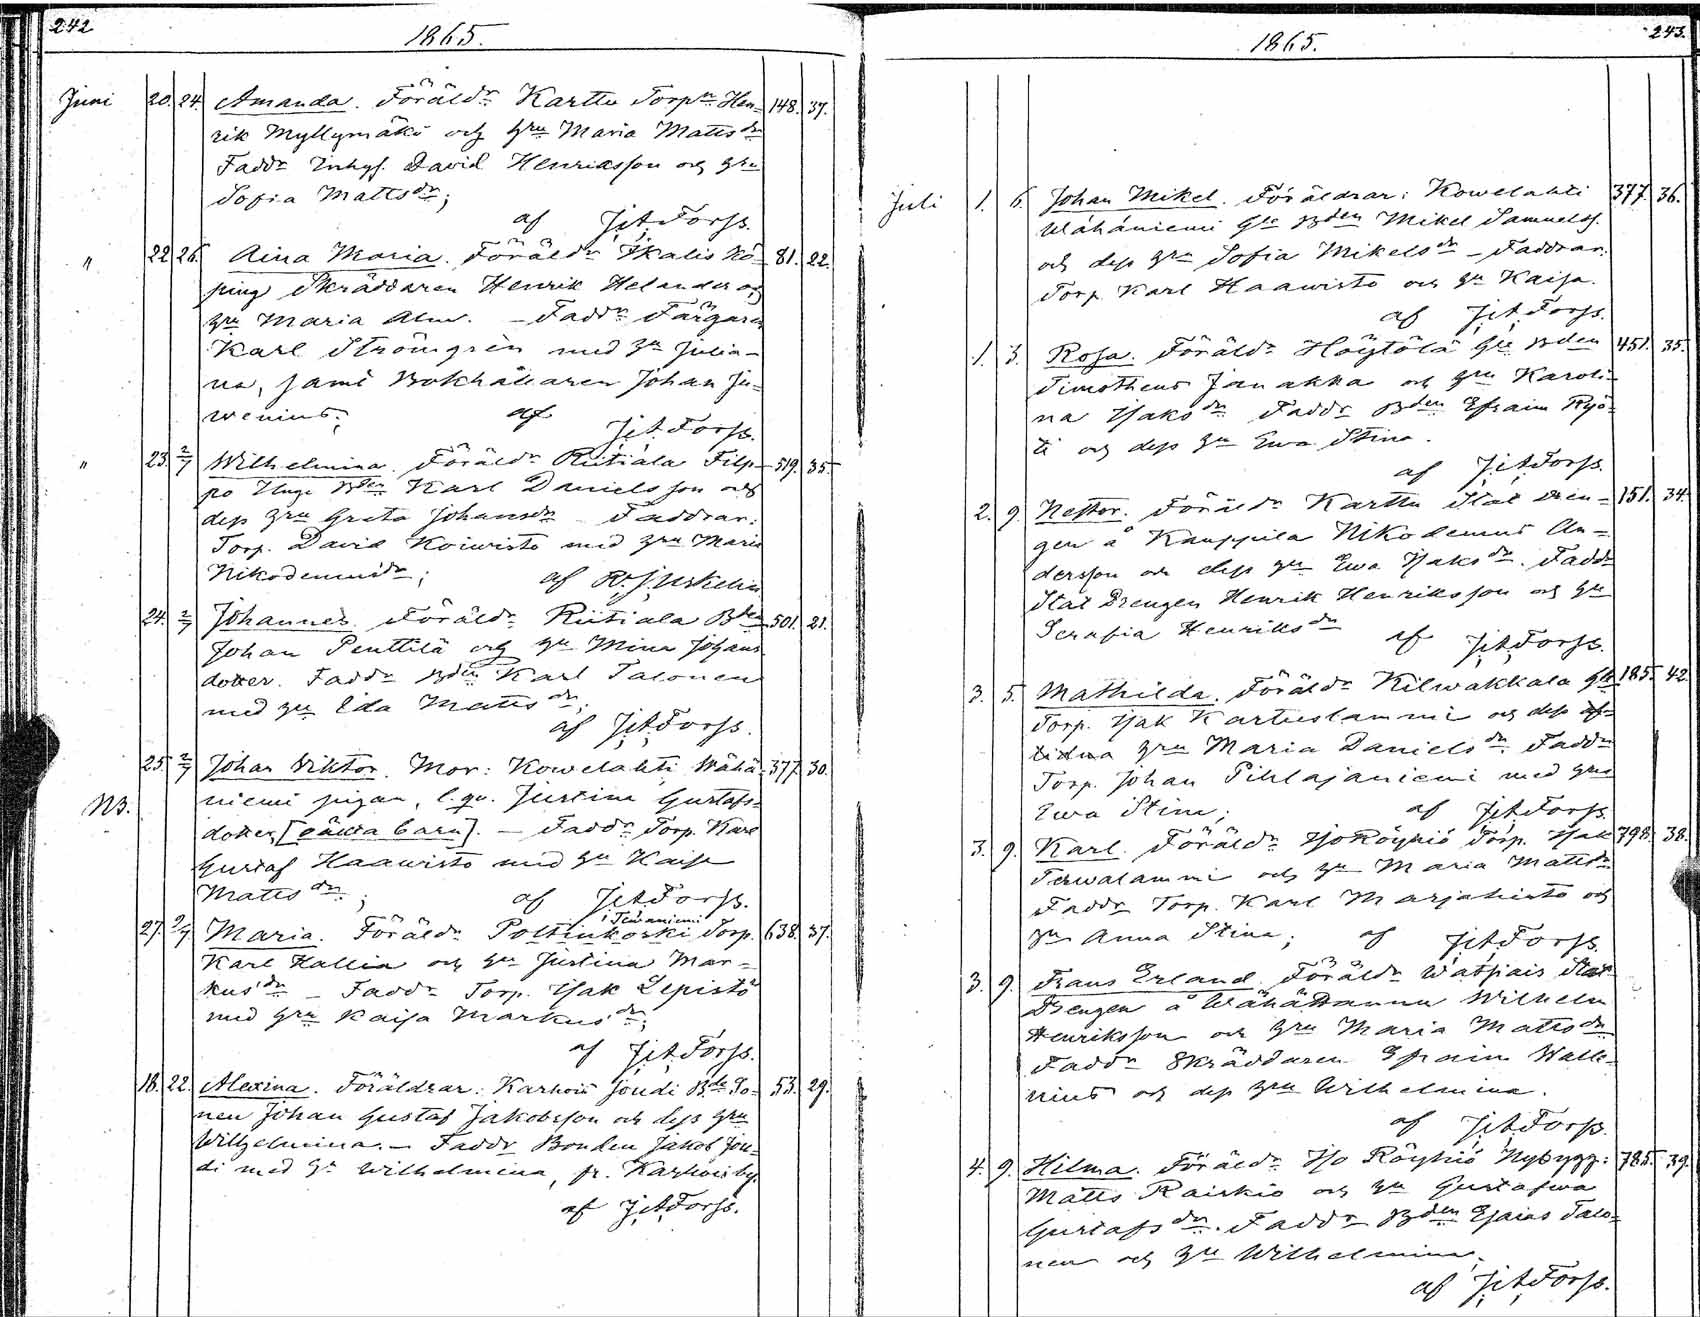 242
1865.
Juni 20. 24. Amanda. Föräldr Karttu Torpn Hen- 148. 37.
rik Myllymäki och hru Maria Mattsdr
Faddr Inhys. David Henriksson och hru
Sofia Mattsdr;
af J.A. Forss.
" 22 26. Aina Maria. Föräldr Ikalis kö- 81. 22.
ping Skräddaren Henrik Helander och
hru Maria Alm. — Faddr Färgaren
Karl Strömgrén med hu Julia-
na, samt Bokhållaren Johan Ju-
wenius; af
J.A. Forss.
" 23. 2/7 Wilhelmina. Föräldr Riitiala Filp- 519. 35.
po Bden Karl Danielsson och
dess hru Greta Johansdr — Faddrar:
Torp. David Koiwisto med hru Maria
Nikodemusdr; af R. Juselius
24. 2/7 Johannes. Föräldr Riitiala Bden 501. 21.
Johan Penttilä och hu Mina Johans
dotter. Faddr Bden Karl Talonen
med hu Eda Mattsdr;
af J.A. Forss.
25. 2/7 Johan Viktor. Mor: Kowelahti Wähä- 377. 30.
NB. niemi pigan, l. qv. Justina Gustafs-
dotter, [oäkta barn]. — Faddr Torp. Karl
Gustaf Haawisto med hu Kaisa
Mattsdr; af J.A. Forss.
27. 9/7 Maria. Föräldr Poltinkoski Torp. 638. 37.
Karl Kallia och hu Justina Mar-
kusdr — Faddr Torp. Isak Lepistö
med hru Kaisa Markusdr;
af J.A. Forss.
18. 22. Alexina. Föräldrar: Karhois Joudi Bde So- 53. 29.
nen Johan Gustaf Jakobsson och dess hru
Wilhelmina. — Faddr Bonden Jakob Jou-
di med hu Wilhelmina, fr. Karhois by.
af J.A. Forss.
243.
1865.
Juli 1. 6. Johan Mikel. Föräldrar: Kowelahti 377. 36.
Wähäniemi Bden Mikel Samuelss.
och dess hru Sofia Mikelsdr — Faddrar:
Torp. Karl Haawisto och hu Kaisa.
af J.A. Forss.
1. 3. Rosa. Föräldr Höytölä Bden 451. 35.
Timotheus Janakka och hru Karoli-
na Isaksdr Faddr Bden Efraim Ryö-
ti och dess hu Ewa Stina.
af J.A. Forss.
2. 9. Nestor. Föräldr Karttu Stat Dren- 151. 34.
gen å Kauppila Nikodemus An-
dersson och dess hu Ewa Isaksdr. Faddr
Stat Drengen Henrik Henriksson och hu
Serafia Henriksdr af J.A. Forss.
3. 5. Mathilda. Föräldr Kilwakkala 185. 42.
Torp. Isak Kartuslammi och dess af-
lidna hru Maria Danielsdr. Faddr
Torp. Johan Pihlajaniemi med hru
Ewa Stina; af J.A. Forss.
3. 9. Karl. Föräldr Iso Röyhiö Torp. Isak 798. 38.
Terwalammi och hu Maria Mattsdr
Faddr Torp. Karl Marjahisto och
hu Anna Stina; af J.A. Forss.
3. 9. Frans Erland. Föräldr Watsiais Stat
Drengen å Wähähannu Wilhelm
Henriksson och hru Maria Mattsdr
Faddr Skräddaren Efraim Walle-
nius och dess hru Wilhelmina.
af J.A. Forss.
4. 9. Hilma. Föräldr Iso Röyhiö Nybygg: 785. 39.
Matts Raiskio och hu Gustafwa
Gustafsdr. Faddr Bden Esaias Talo-
nen och hu Wilhelmina;
af J.A. Forss.